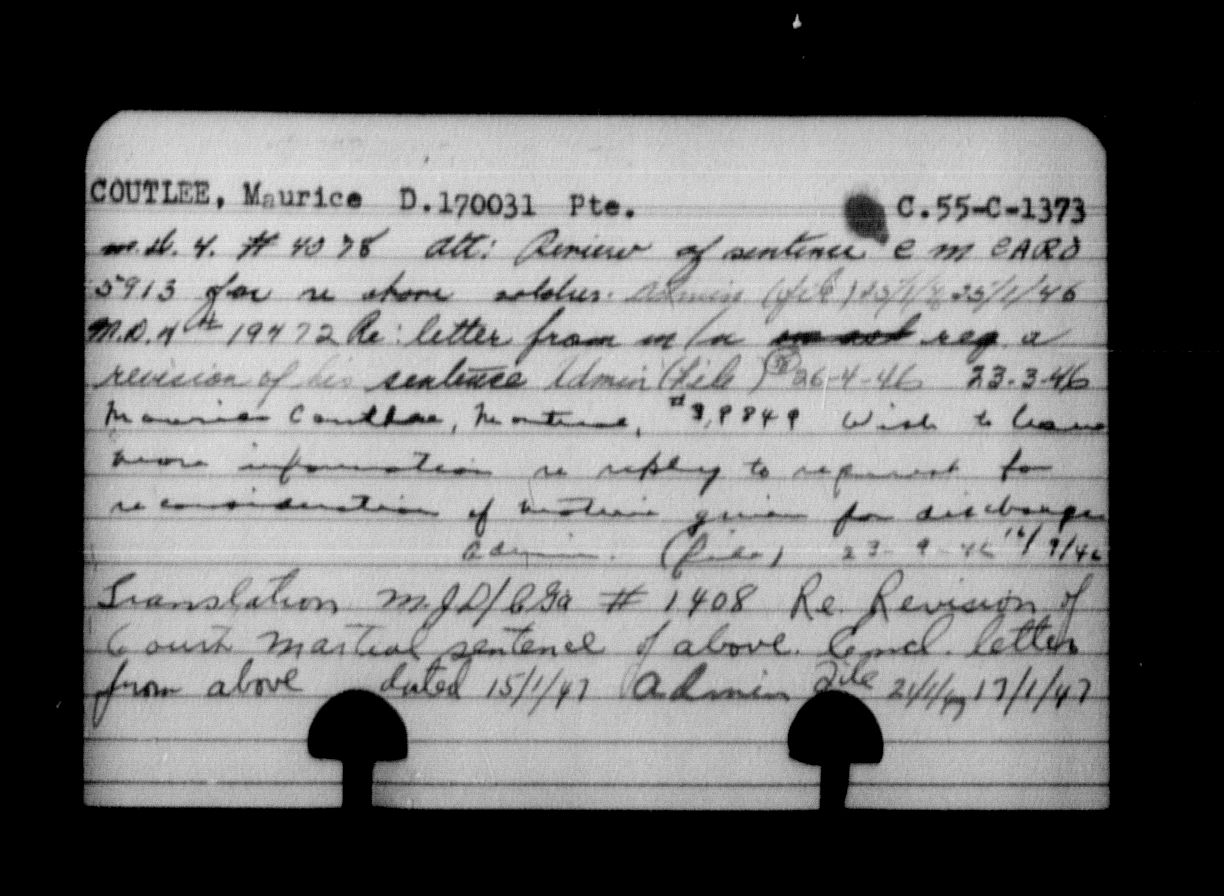 COUTLEE, Maurice D.170031 Pte. C.55-C-1373
M.D. 4. # 4078 Att: Review of sentence C M CARD
5913 for re above soldier. Admin (file) 25/1/46
M.D. 4 # 19472 Re: letter from m/n req. a
revision of his sentence Admin (File) 26-4-46 23-3-46
Maurice Couthee, Montreal, Wish to have
more information re reply to request for
reconsideration of motive given for discharge
Admin. (File) 23-9-46 16/9/46
Translation M.J.D/ # 1408 Re. Revision of
Court Martial sentence of above. Encl. letter
from above dated 15/1/47 Admin File 21/1/47 17/1/47